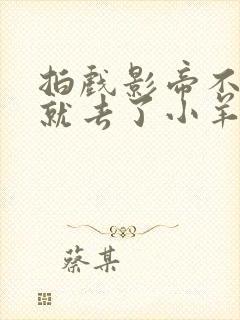 拍戏影帝不
就去了小羊
蔡某